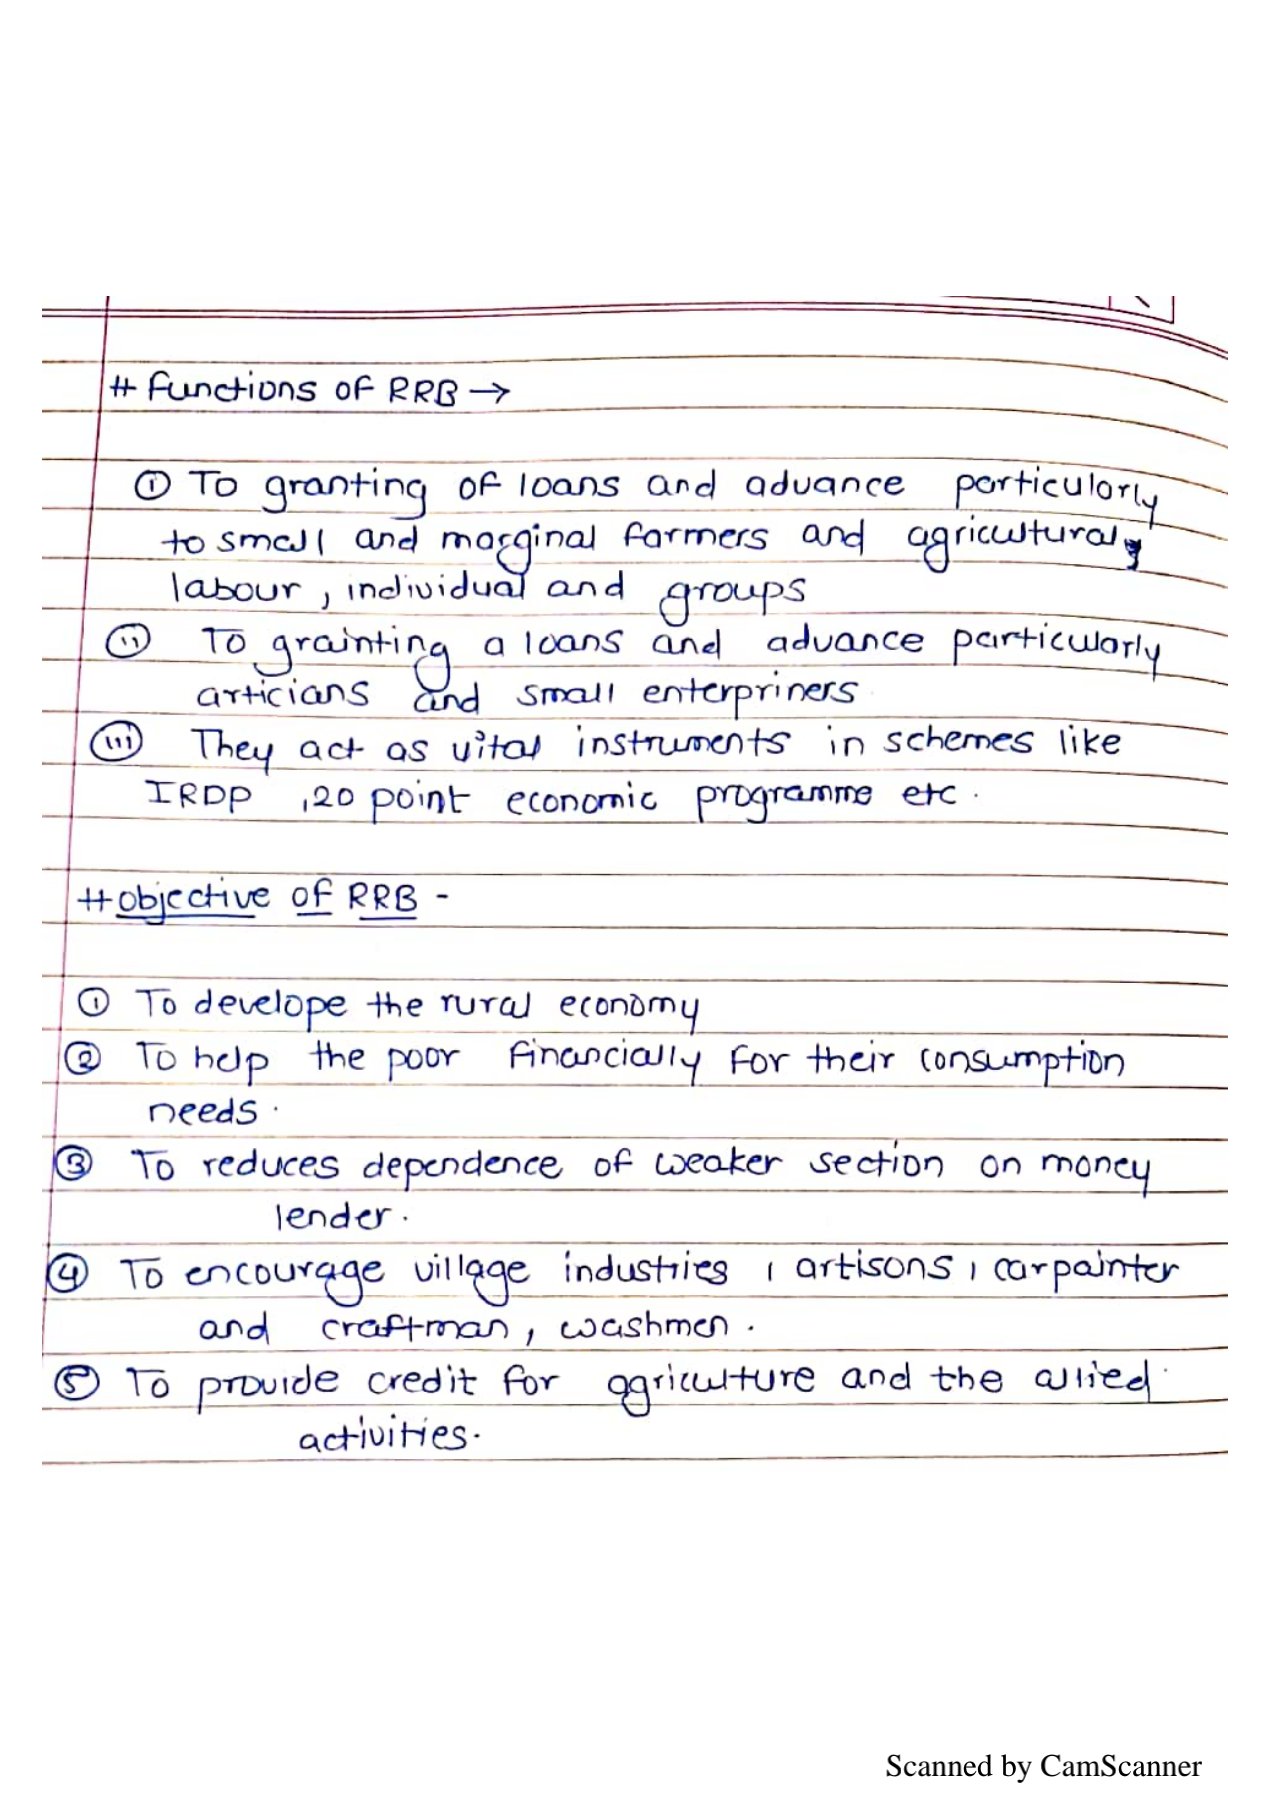 # Functions of RRB →
① To granting of loans and advance particularly
to small and marginal farmers and agricultural,
labour, individual and groups
(ii) To grainting a loans and advance particularly
articians and small enterpriners
(iii) They act as vital instruments in schemes like
IRDP ,20 point economic programme etc.
# objective of RRB -
① To develope the rural economy
② To help the poor financially for their consumption
needs.
③ To reduces dependence of weaker section on money
lender.
④ To encourage village industries , artisons , carpainter
and craftman, washmen.
⑤ To provide credit for agriculture and the allied
activities.
Scanned by CamScanner